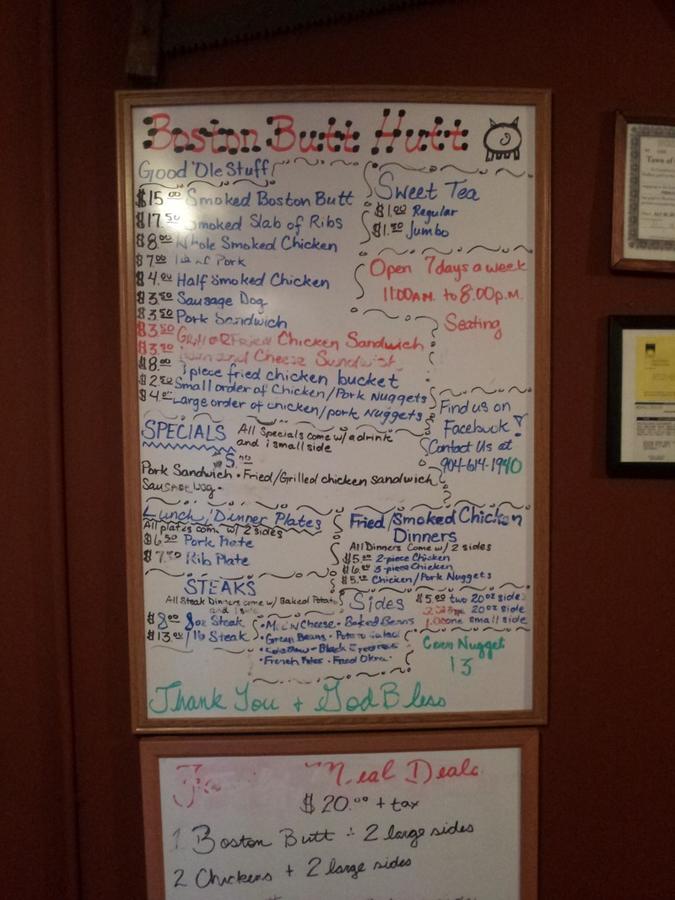 Boston Butt Hutt
Good 'Ole Stuff
$15.00 Smoked Boston Butt
$17.50 Smoked Slab of Ribs
$8.00 Whole Smoked Chicken
$7.00 Pork
$4.00 Half Smoked Chicken
$3.50 Sausage Dog
$3.50 Pork Sandwich
$3.50 Grill or Fried Chicken Sandwich
$3.50 and Cheese Sandwich
$8.00 piece fried chicken bucket
$2.50 Small order of Chicken/Pork Nuggets
$4.00 Large order of chicken/pork Nuggets
Sweet Tea
$1.00 Regular
$1.50 Jumbo
Open 7 days a week
11:00 A.M. to 8:00 p.m.
Seating
Find us on
Facebook!
Contact Us at
904-614-1940
SPECIALS All Specials come w/ a drink
and 1 small side
Pork Sandwich • Fried/Grilled chicken sandwich
Sausage Dog •
Lunch/Dinner Plates
All plates come w/ 2 sides
$6.50 Pork Plate
$7.50 Rib Plate
Fried/Smoked Chicken
Dinners
All Dinners Come w/ 2 sides
2-piece Chicken
3-piece Chicken
Chicken/Pork Nuggets
STEAKS
All Steak Dinners come w/ Baked Potato
and 1 side
$8.00 8oz Steak
$13.00 1 lb Steak
Sides
$5.00 two 20oz sides
20oz side
1.00 one small side
• Mac N Cheese • Baked Beans
• Green Beans • Potato Salad
• Coleslaw • Black Eyed Peas
• French Fries • Fried Okra
Corn Nugget
13
Thank You + God Bless
Meal Deals
$20.00 + tax
1 Boston Butt + 2 large sides
2 Chickens + 2 large sides
Town of